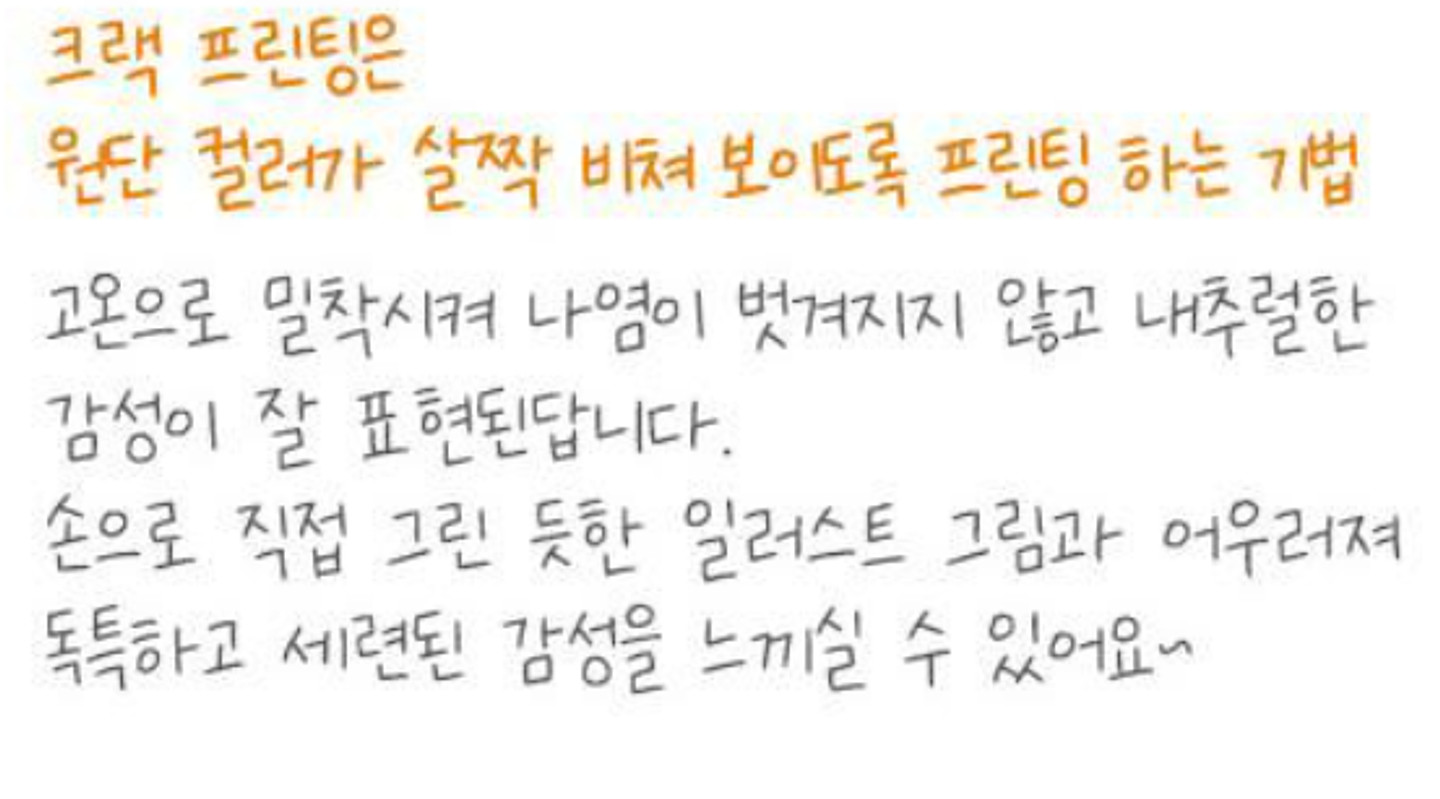 크랙 프린팅은
원단 컬러가 살짝 비쳐 보이도록 프린팅 하는 기법
고온으로 밀착시켜 나염이 벗겨지지 않고 내추럴한
감성이 잘 표현된답니다.
손으로 직접 그린 듯한 일러스트 그림과 어우러져
독특하고 세련된 감성을 느끼실 수 있어요~